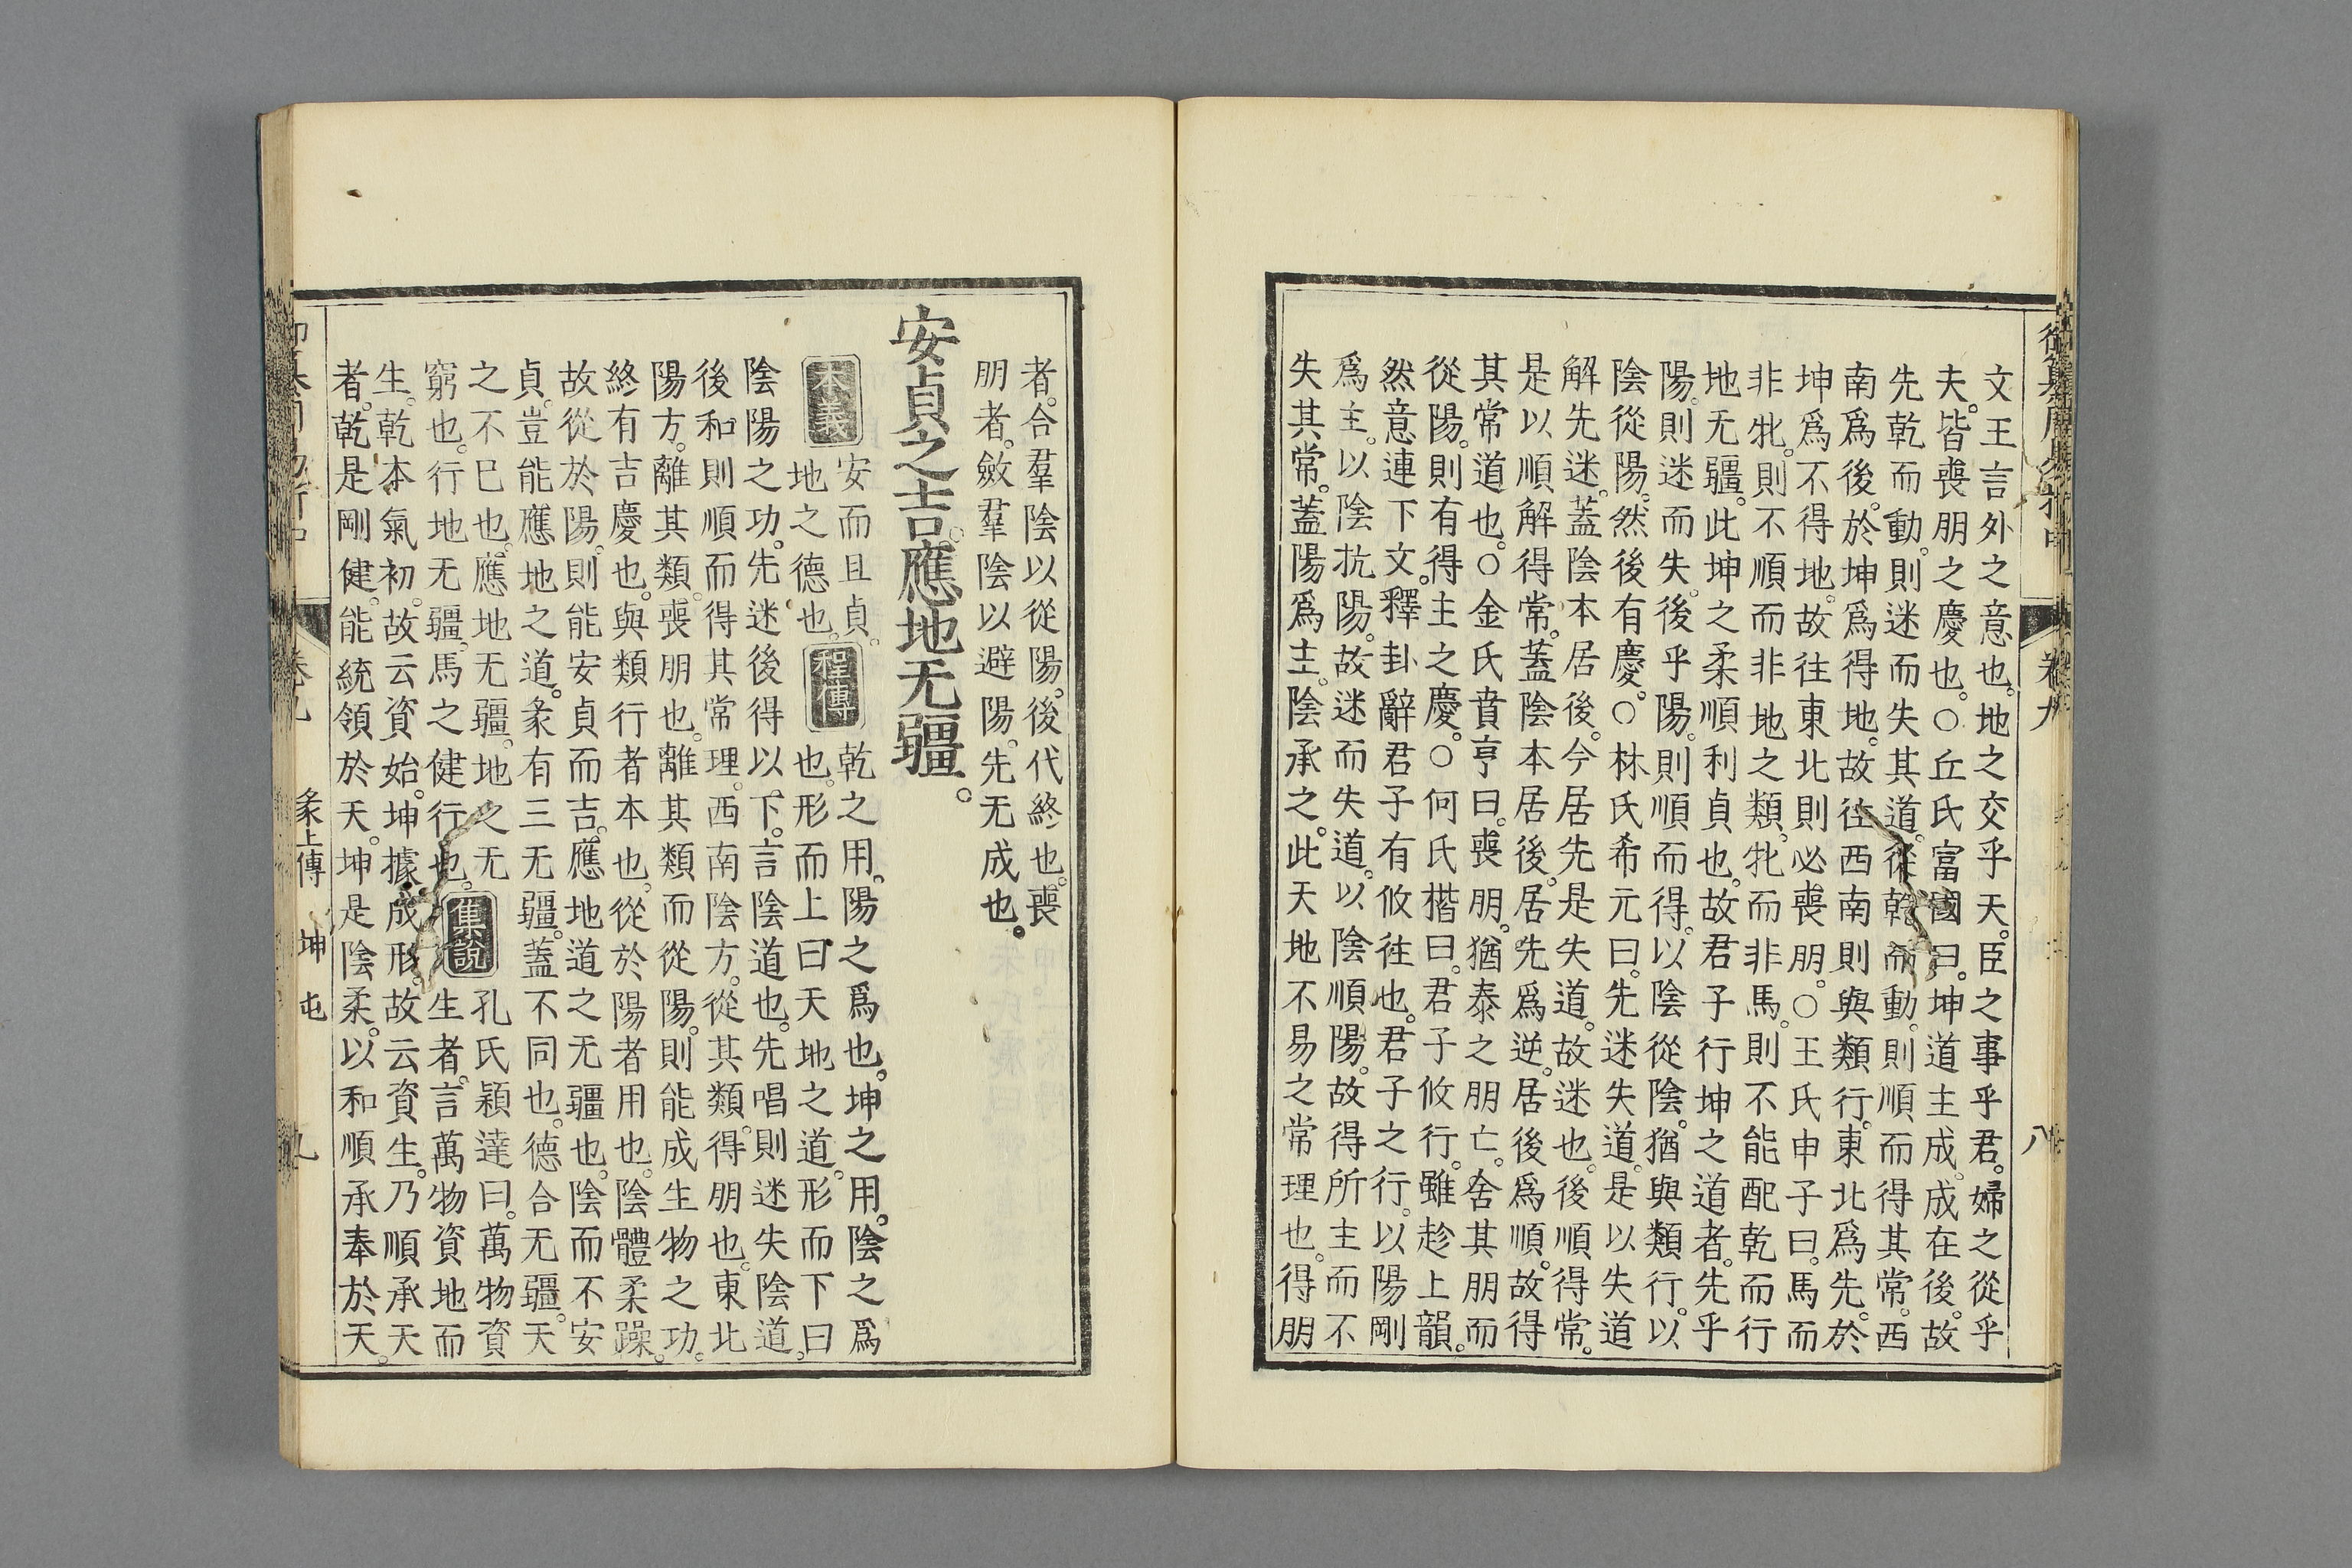 文王言外之意也。地之交乎天。臣之事乎君。婦之從乎
夫。皆喪朋之慶也。○丘氏富國曰。坤道主成。成在後。故
先乾而動。則迷而失其道。從乾而動。則順而得其常。西
南爲後。於坤爲得地。故往西南則與類行。東北爲先。於
坤爲不得地。故往東北則必喪朋。○王氏申子曰。馬而
非牝。則不順而非地之類。牝而非馬。則不能配乾而行
地无疆。此坤之柔順利貞也。故君子行坤之道者。先乎
陽。則迷而失。後乎陽。則順而得。以陰從陰。猶與類行。以
陰從陽。然後有慶。○林氏希元曰。先迷失道。是以失道
解先迷。蓋陰本居後。今居先是失道。故迷也。後順得常。
是以順解得常。蓋陰本居後。居先爲逆。居後爲順。故得
其常道也。○金氏賁亨曰。喪朋。猶泰之朋亡。舍其朋而
從陽。則有得主之慶。○何氏楷曰。君子攸行。雖趁上韻。
然意連下文。釋卦辭君子有攸往也。君子之行。以陽剛
爲主。以陰抗陽。故迷而失道。以陰順陽。故得所主而不
失其常。蓋陽爲主。陰承之。此天地不易之常理也。得朋
卷九
八
者。合羣陰以從陽。後代終也。喪
朋者。斂羣陰以避陽。先无成也。
安貞之吉。應地无疆。
本義 安而且貞。地之德也。 程傳 乾之用。陽之爲也。坤之用。陰之爲
也。形而上曰天地之道。形而下曰
陰陽之功。先迷後得以下。言陰道也。先唱則迷失陰道。
後和則順而得其常理。西南陰方。從其類。得朋也。東北
陽方。離其類。喪朋也。離其類而從陽。則能成生物之功。
終有吉慶也。與類行者本也。從於陽者用也。陰體柔躁。
故從於陽。則能安貞而吉。應地道之无疆也。陰而不安
貞。豈能應地之道。彖有三无疆。蓋不同也。德合无疆。天
之不已也。應地无疆。地之无
窮也。行地无疆。馬之健行也。 集說 孔氏穎達曰。萬物資
生者。言萬物資地而
生。乾本氣初。故云資始。坤據成形。故云資生。乃順承天
者。乾是剛健。能統領於天。坤是陰柔。以和順承奉於天。
彖上傳 坤 屯